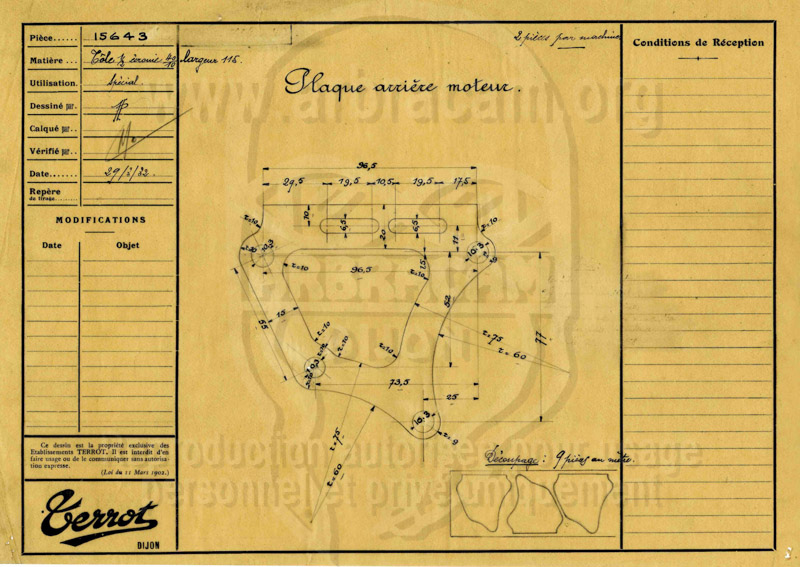 Pièce...... 15643
2 pièces par machine
Matière... Tôle ½ écrouie 40/10 largeur 115.
Utilisation. Spécial
Plaque arrière moteur.
Dessiné par.
Calqué par..
Vérifié par..
Date...... 29/2/32
Repère
de tirage.
MODIFICATIONS
Date Objet
Conditions de Réception
96,5
29,5 19,5 10,5 19,5 17,5
r=10 10 6,5 20 6,5 11 r=10
10.3 10.3
r=9
r=10 96,5 r=10 15
15 52 77
55
r=10 r=75
r=10 r=60
10.3
73,5
25
10.3
r=75 r=9
r=60
Découpage : 9 pièces au mètre.
Ce dessin est la propriété exclusive des
Etablissements TERROT. Il est interdit d'en
faire usage ou de le communiquer sans autorisa-
tion expresse.
(Loi du 11 Mars 1902.)
Terrot
DIJON
www.arbracam.org
ARBRACAM
personnel et privé uniquement